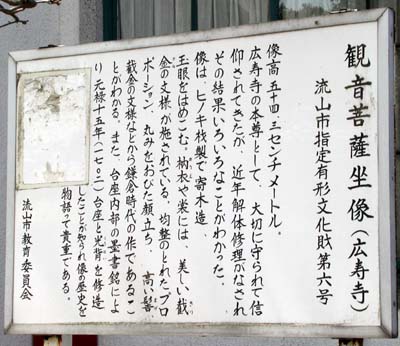 観音菩薩坐像（広寿寺）
流山市指定有形文化財第六号
像高五十四．三センチメートル。
広寿寺の本尊として、大切に守られ信
仰されてきたが、近年解体修理がなされ
その結果いろいろなことがわかった。
像は、ヒノキ材製で寄木造、
玉眼をはめこむ。衲衣や裳には、美しい截
金の文様が施されている。均整のとれたプロ
ポーション、丸みをおびた顔立ち、高い髻
截金の文様などから鎌倉時代の作であるこ
とがわかる。また、台座内部の墨書銘によ
り元禄十五年（一七〇二）台座と光背を修造
したことが知られ像の歴史を
物語って貴重である。
流山市教育委員会